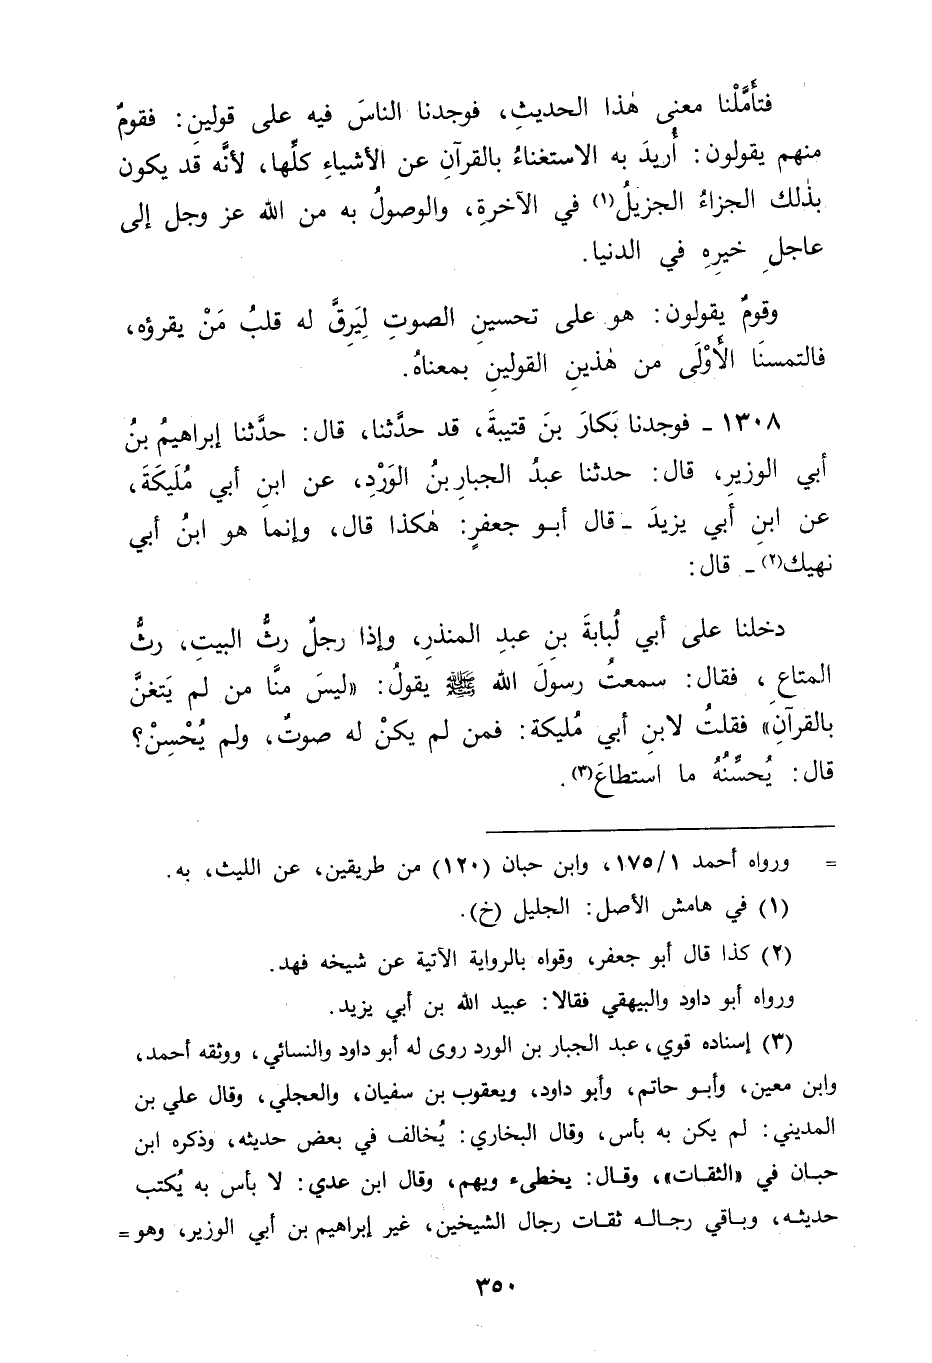 فتأَمَّلْنا معنى هٰذا الحديثِ، فوجدنا الناسَ فيه على قولينِ: فقومٌ
منهم يقولون: أُريدَ به الاستغناءُ بالقرآنِ عن الأشياءِ كلِّها، لأنَّه قد يكون
بذٰلك الجزاءُ الجزيلُ(١) في الآخرةِ، والوصولُ به من الله عز وجل إلى
عاجلِ خيرِهِ في الدنيا.
وقومٌ يقولون: هو على تحسينِ الصوتِ لِيَرِقَّ له قلبُ مَنْ يقرؤه،
فالتمسنَا الأَوْلَى من هٰذينِ القولينِ بمعناهُ.
١٣٠٨ ـ فوجدنا بَكارَ بنَ قتيبةَ، قد حدَّثنا، قال: حدَّثنا إبراهيمُ بنُ
أبي الوزيرِ، قال: حدثنا عبدُ الجبارِ بنُ الوَرْدِ، عن ابنِ أبي مُلَيكَةَ،
عن ابنِ أبي يزيدَ ـ قال أبو جعفرٍ: هٰكذا قال، وإنما هو ابنُ أبي
نهيك(٢) ـ قال:
دخلنا على أبي لُبابةَ بنِ عبدِ المنذرِ، وإذا رجلٌ رثُّ البيتِ، رثُّ
المتاعِ، فقال: سمعتُ رسولَ الله ﷺ يقولُ: «ليسَ منَّا من لم يَتغنَّ
بالقرآنِ» فقلتُ لابنِ أبي مُليكة: فمن لم يكنْ له صوتٌ، ولم يُحْسِنْ؟
قال: يُحسِّنُهُ ما استطاعَ(٣).
= ورواه أحمد ١٧٥/١، وابن حبان (١٢٠) من طريقين، عن الليث، به.
(١) في هامش الأصل: الجليل (خ).
(٢) كذا قال أبو جعفر، وقواه بالرواية الآتية عن شيخه فهد.
ورواه أبو داود والبيهقي فقالا: عبيد الله بن أبي يزيد.
(٣) إسناده قوي، عبد الجبار بن الورد روى له أبو داود والنسائي، ووثقه أحمد،
وابن معين، وأبو حاتم، وأبو داود، ويعقوب بن سفيان، والعجلي، وقال علي بن
المديني: لم يكن به بأس، وقال البخاري: يُخالف في بعض حديثه، وذكره ابن
حبان في «الثقات»، وقال: يخطىء ويهم، وقال ابن عدي: لا بأس به يُكتب
حديثه، وباقي رجاله ثقات رجال الشيخين، غير إبراهيم بن أبي الوزير، وهو =
٣٥٠